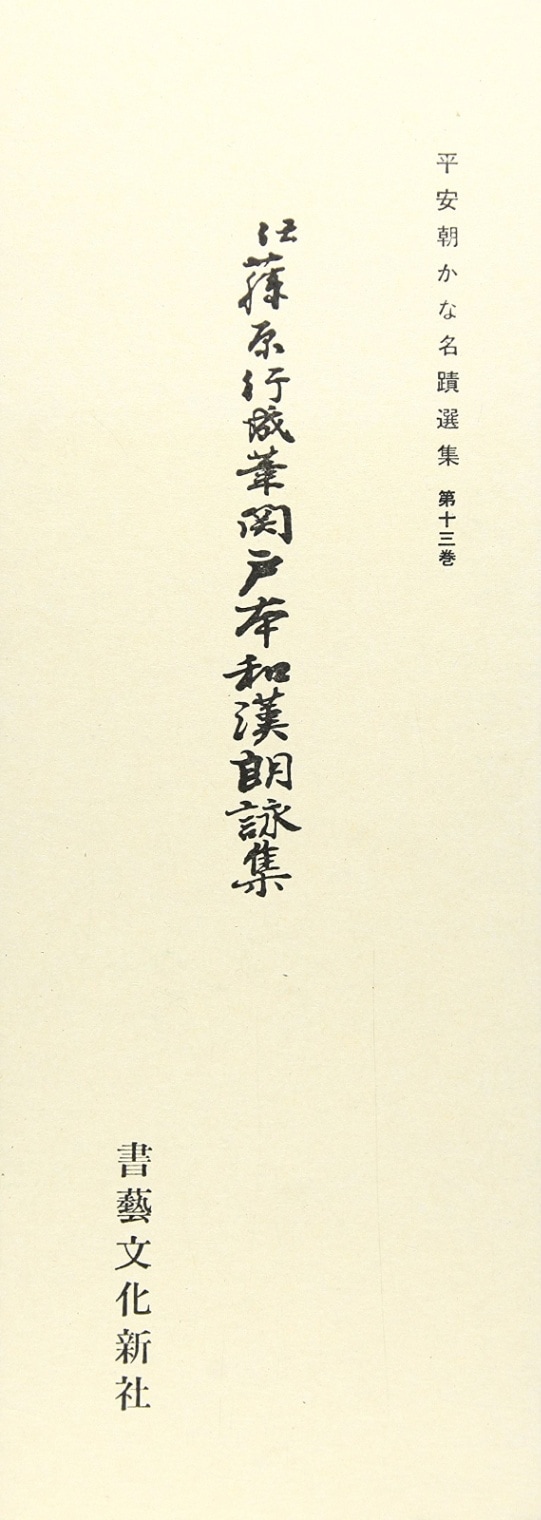 平安朝かな名蹟選集 第十三巻
伝藤原行成筆関戸本和漢朗詠集
書藝文化新社